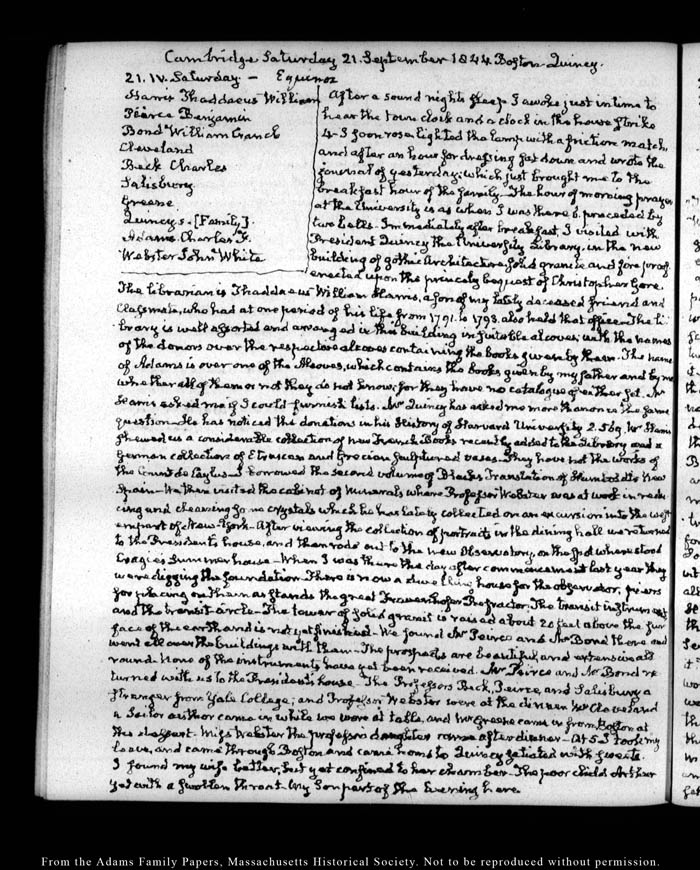 Cambridge Saturday 21. September 1844. Boston-Quincy.
21. IV. Saturday — Equinox
Harris Thaddaeus William
Peirce Benjamin
Bond William Cranch
Cleveland
Beck Charles
Salisbury
Greene
Quincy s. [Family].
Adams. Charles F.
Webster John White
After a sound nights sleep I awoke just in time to
hear the town clock and a clock in the house strike
4 - I soon rose lighted the lamp with a friction match,
and after an hour for dressing sat down and wrote the
journal of yesterday; which just brought me to the
breakfast hour of the family. The hour of morning prayer
at the University is as when I was there 6. preceded by
two bells. Immediately after breakfast, I visited with
President Quincy the University Library, in the new
building of gothic Architecture solid granite and fire proof
erected upon the princely bequest of Christopher Gore.
The librarian is Thaddaeus William Harris, a son of my lately deceased friend and
Classmate, who had at one period of his life from 1791. to 1793. also held that office. The li-
brary is well assorted and arranged in the building in suitable alcoves, with the names
of the donors over the respective alcoves containing the books given by them. The name
of Adams is over one of the Alcoves, which contains the books given by my father and by me
whether all of them or not they do not know, for they have no catalogue of either set. Mr
Harris asked me if I could furnish lists. Mr Quincy has asked me more than once the same
question. He has noticed the donations in his History of Harvard University 2. 569. Mr Harris
shewed us a considerable collection of new French Books recently added to the Library and a
German collection of Etruscan and Grecian sculptured vases. They have not the works of
the Count de Caylus. I borrowed the second volume of Blacks Translation of Humboldts New
Spain. We then visited the cabinet of Minerals where Professor Webster was at work in redu-
cing and cleaving some crystals which he has lately collected on an excursion into the west
ern part of New-York. After viewing the collection of portraits in the dining hall we returned
to the Presidents house, and then rode out to the new Observatory, on the spot where stood
Cragies Summer house. When I was there the day after commencement last year they
were digging the foundation. There is now a dwelling house for the observator; piers
for placing on them as stands the great Frauenhofer Refractor, The transit instrument
and the transit circle. The tower of solid granit is raised about 20 feet above the sur
face of the earth and is not yet finished. We found Mr Peirce and Mr Bond there and
went all over the buildings with them. The prospects are beautiful, and extensive all
round. None of the instruments have yet been received. Mr Peirce and Mr Bond re
turned with us to the President's house. The Professors Beck, Peirce, and Salisbury a
stranger from Yale College, and Professor Webster were at the dinner. Mr Cleveland
a Sailor author came in while we were at table, and Mr Greene came in from Boston at
the dessert. Miss Webster the professors daughter came after dinner. At 5. I took my
leave, and came through Boston and came home to Quincy satiated with sweets.
I found my wife better, but yet confined to her chamber. The poor child Arthur
yet with a swollen throat. My Son part of the Evening here.
From the Adams Family Papers, Massachusetts Historical Society. Not to be reproduced without permission.